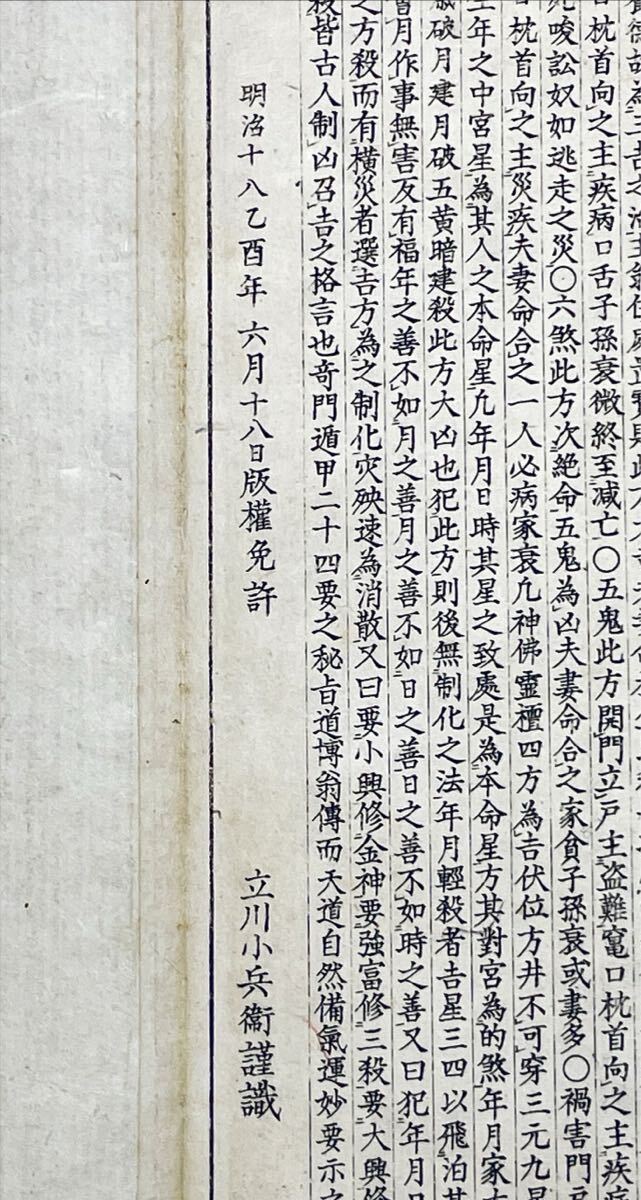 口枕首向之主疾病口舌子孫衰微終至减亡〇五鬼此方開門立戸主盗難竃口枕首向之主疾
唆訟奴如逃走之災〇六煞此方次絶命五鬼為凶夫妻命合之家貧子孫衰或妻多〇禍害門
枕首向之主災疾夫妻命合之一人必病家衰凢神佛靈檀四方為吉伏位方井不可穿三元九星
年之中宮星為其人之本命星凢年月日時其星之致處是為本命星方其對宮為的煞年月家
破月建月破五黄暗建殺此方大凶也犯此方則後無制化之法年月輕殺者吉星三四以飛泊其
月作事無害反有福年之善不如月之善月之善不如日之善日之善不如時之善又曰犯年月
之方殺而有横災者選吉方為之制化灾殃速為消散又曰要小興修金神要強富修三殺要大興修
殺皆古人制凶召吉之格言也奇門遁甲二十四要之秘旨道博翁傳而天道自然備氣運妙要示之
明治十八乙酉年六月十八日版權免許 立川小兵衞謹識